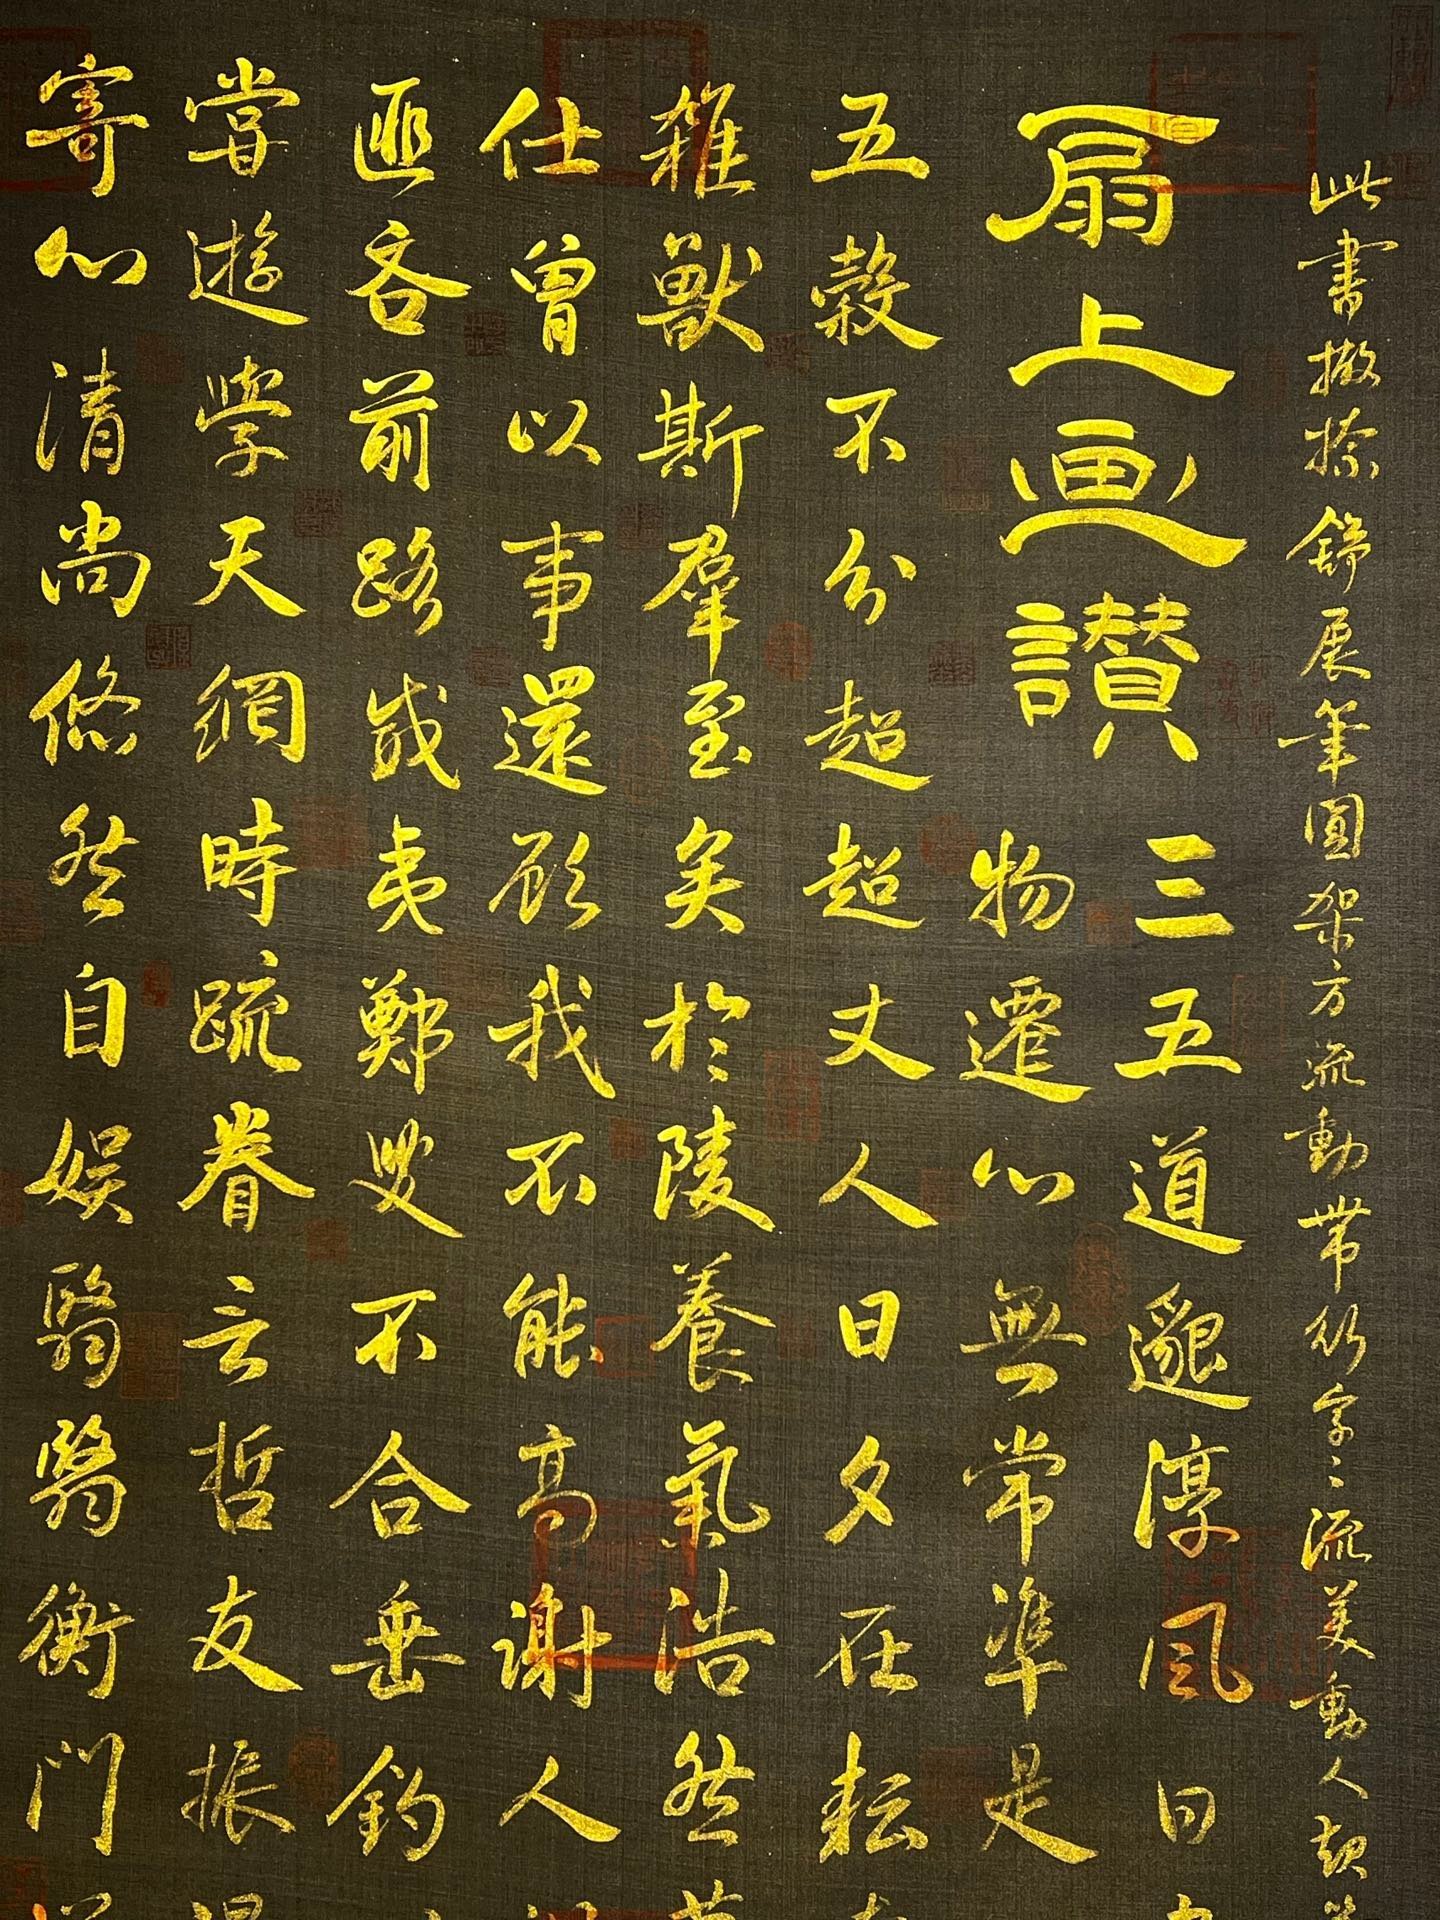 此書撇捺舒展筆圓架方流動帶行字〻流美動人頡
扇上画讃 三五道邈淳風日
物遷心無常準是
五穀不分超超丈人日夕在耘
雜獸斯羣至矣於陵養氣浩然
仕曾以事還顧我不能高謝人
匪吝前路威夷鄭叟不合垂釣
甞遊學天網時疏眷言哲友振
寄心清尚悠然自娱翳翳衡門